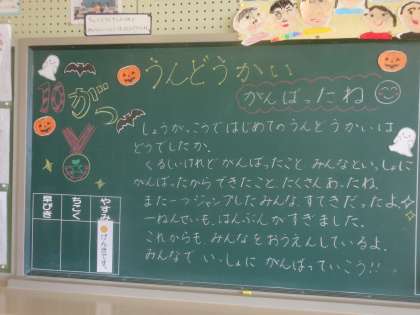 10がつ
うんどうかい
がんばったね
しょうがっこうではじめてのうんどうかいは
どうでしたか。
くるしいけれどがんばったこと、みんなといっしょに
がんばったからできたこと、たくさんあったね。
また一つジャンプしたみんな、すてきだったよ。
一ねんせいも、はんぶんがすぎました。
これからも、みんなをおうえんしているよ。
みんなでいっしょにがんばっていこう!!
やすみ
ちこく
早びき
げんきです。